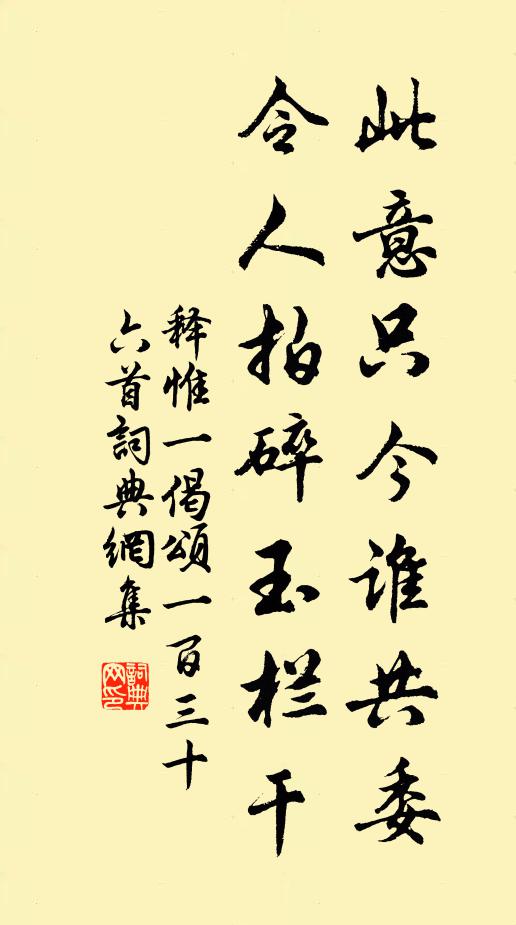 此意只今谁共委
令人拍碎玉栏干
释惟一偈頌一百三十
六首詞典網集
詞典
网印